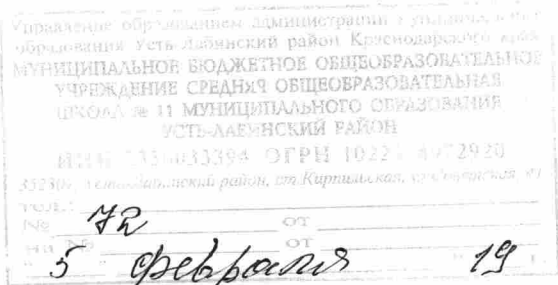 Управление образованием администрации муниципального
образования Усть-Лабинский район Краснодарского края
МУНИЦИПАЛЬНОЕ БЮДЖЕТНОЕ ОБЩЕОБРАЗОВАТЕЛЬНОЕ
УЧРЕЖДЕНИЕ СРЕДНЯЯ ОБЩЕОБРАЗОВАТЕЛЬНАЯ
ШКОЛА № 11 МУНИЦИПАЛЬНОГО ОБРАЗОВАНИЯ
УСТЬ-ЛАБИНСКИЙ РАЙОН
ИНН ОГРН
район, ст. Кирпильская,
тел.:
№ 72 от
на № от
" 5 " февраля 19